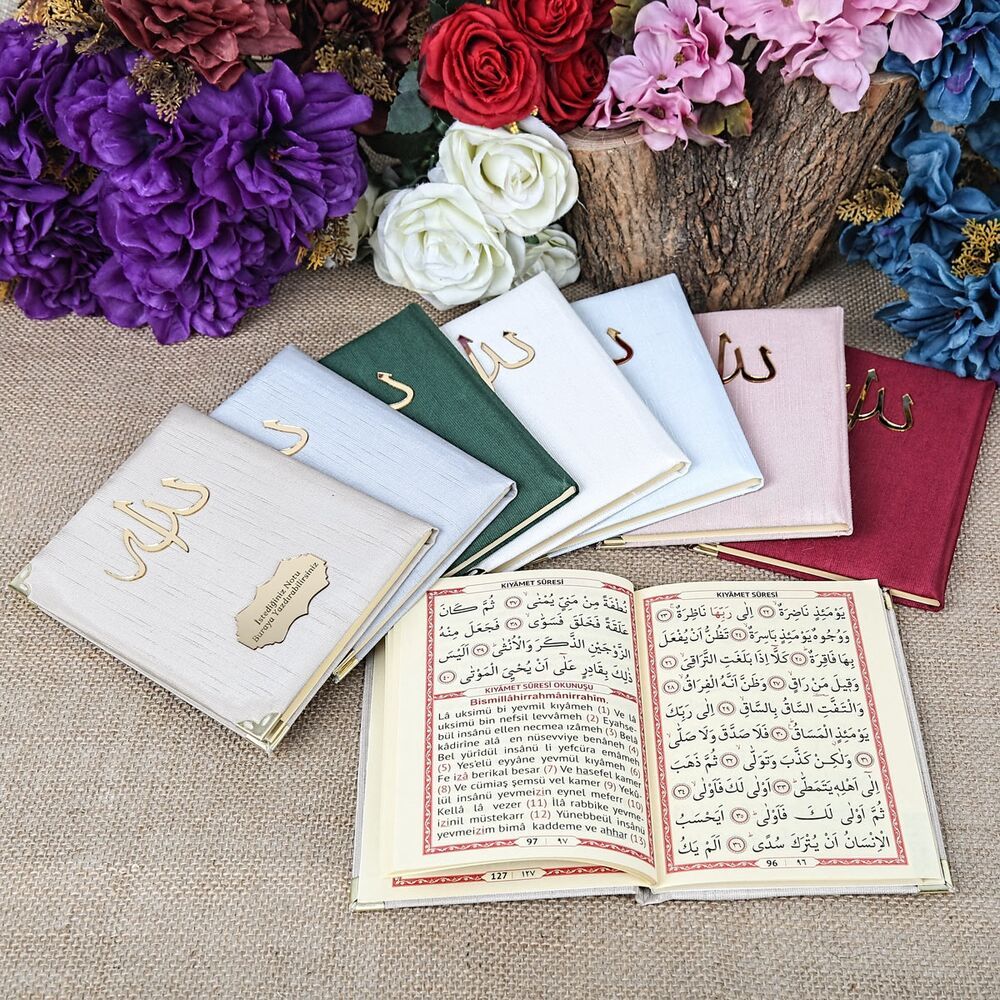 İstediğiniz Notu
Buraya Yazdırabilirsiniz
KIYÂMET SÛRESİ
نُطْفَةً مِنْ مَنِيٍّ يُمْنٰى ﴿٣٧﴾ ثُمَّ كَانَ
عَلَقَةً فَخَلَقَ فَسَوّٰى ﴿٣٨﴾ فَجَعَلَ مِنْهُ
الزَّوْجَيْنِ الذَّكَرَ وَالْاُنْثٰى ﴿٣٩﴾ اَلَيْسَ
ذٰلِكَ بِقَادِرٍ عَلٰٓى اَنْ يُحْيِيَ الْمَوْتٰى ﴿٤٠﴾
KIYÂMET SÛRESİ OKUNUŞU
Bismillâhirrahmânirrahîm.
Lâ uksimü bi yevmil kıyâmeh (1) Ve lâ
uksimü bin nefsil levvâmeh (2) Eyahse-
bül insânü ellen necmea ızâmeh (3) Belâ
kâdirîne alâ en nüsevviye benâneh (4)
Bel yürîdül insânü li yefcüra emâmeh
(5) Yes'elü eyyâne yevmül kıyâmeh (6)
Fe izâ berikal besar (7) Ve hasefel kamer
(8) Ve cümiaş şemsü vel kamer (9) Yekû-
lül insânü yevmeizin eynel meferr (10)
Kellâ lâ vezer (11) İlâ rabbike yevme-
izinil müstekarr (12) Yünebbeül insânü
yevmeizim bimâ kaddeme ve ahhar (13)
97 ٩٧
127 ١٢٧
KIYÂMET SÛRESİ
يَوْمَئِذٍ نَاضِرَةٌ ﴿٢٢﴾ اِلٰى رَبِّهَا نَاظِرَةٌ ﴿٢٣﴾
وَوُجُوهٌ يَوْمَئِذٍ بَاسِرَةٌ ﴿٢٤﴾ تَظُنُّ اَنْ يُفْعَلَ
بِهَا فَاقِرَةٌ ﴿٢٥﴾ كَلَّٓا اِذَا بَلَغَتِ التَّرَاقِيَ ﴿٢٦﴾
وَقِيلَ مَنْ رَاقٍ ﴿٢٧﴾ وَظَنَّ اَنَّهُ الْفِرَاقُ ﴿٢٨﴾
وَالْتَفَّتِ السَّاقُ بِالسَّاقِ ﴿٢٩﴾ اِلٰى رَبِّكَ
يَوْمَئِذٍ الْمَسَاقُ ﴿٣٠﴾ فَلَا صَدَّقَ وَلَا صَلّٰى
﴿٣١﴾ وَلٰكِنْ كَذَّبَ وَتَوَلّٰى ﴿٣٢﴾ ثُمَّ ذَهَبَ
اِلٰٓى اَهْلِهٖ يَتَمَطّٰى ﴿٣٣﴾ اَوْلٰى لَكَ فَاَوْلٰى ﴿٣٤﴾
ثُمَّ اَوْلٰى لَكَ فَاَوْلٰى ﴿٣٥﴾ اَيَحْسَبُ
الْاِنْسَانُ اَنْ يُتْرَكَ سُدًى ﴿٣٦﴾ اَلَمْ يَكُ
96 ٩٦